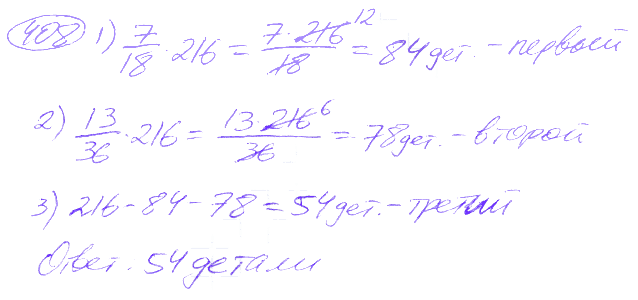 408 1) 7/18 · 216 = 7·216 12/18 = 84 дет. – первый
2) 13/36 · 216 = 13·216 6/36 = 78 дет. – второй
3) 216 - 84 - 78 = 54 дет. – третий
Ответ. 54 детали